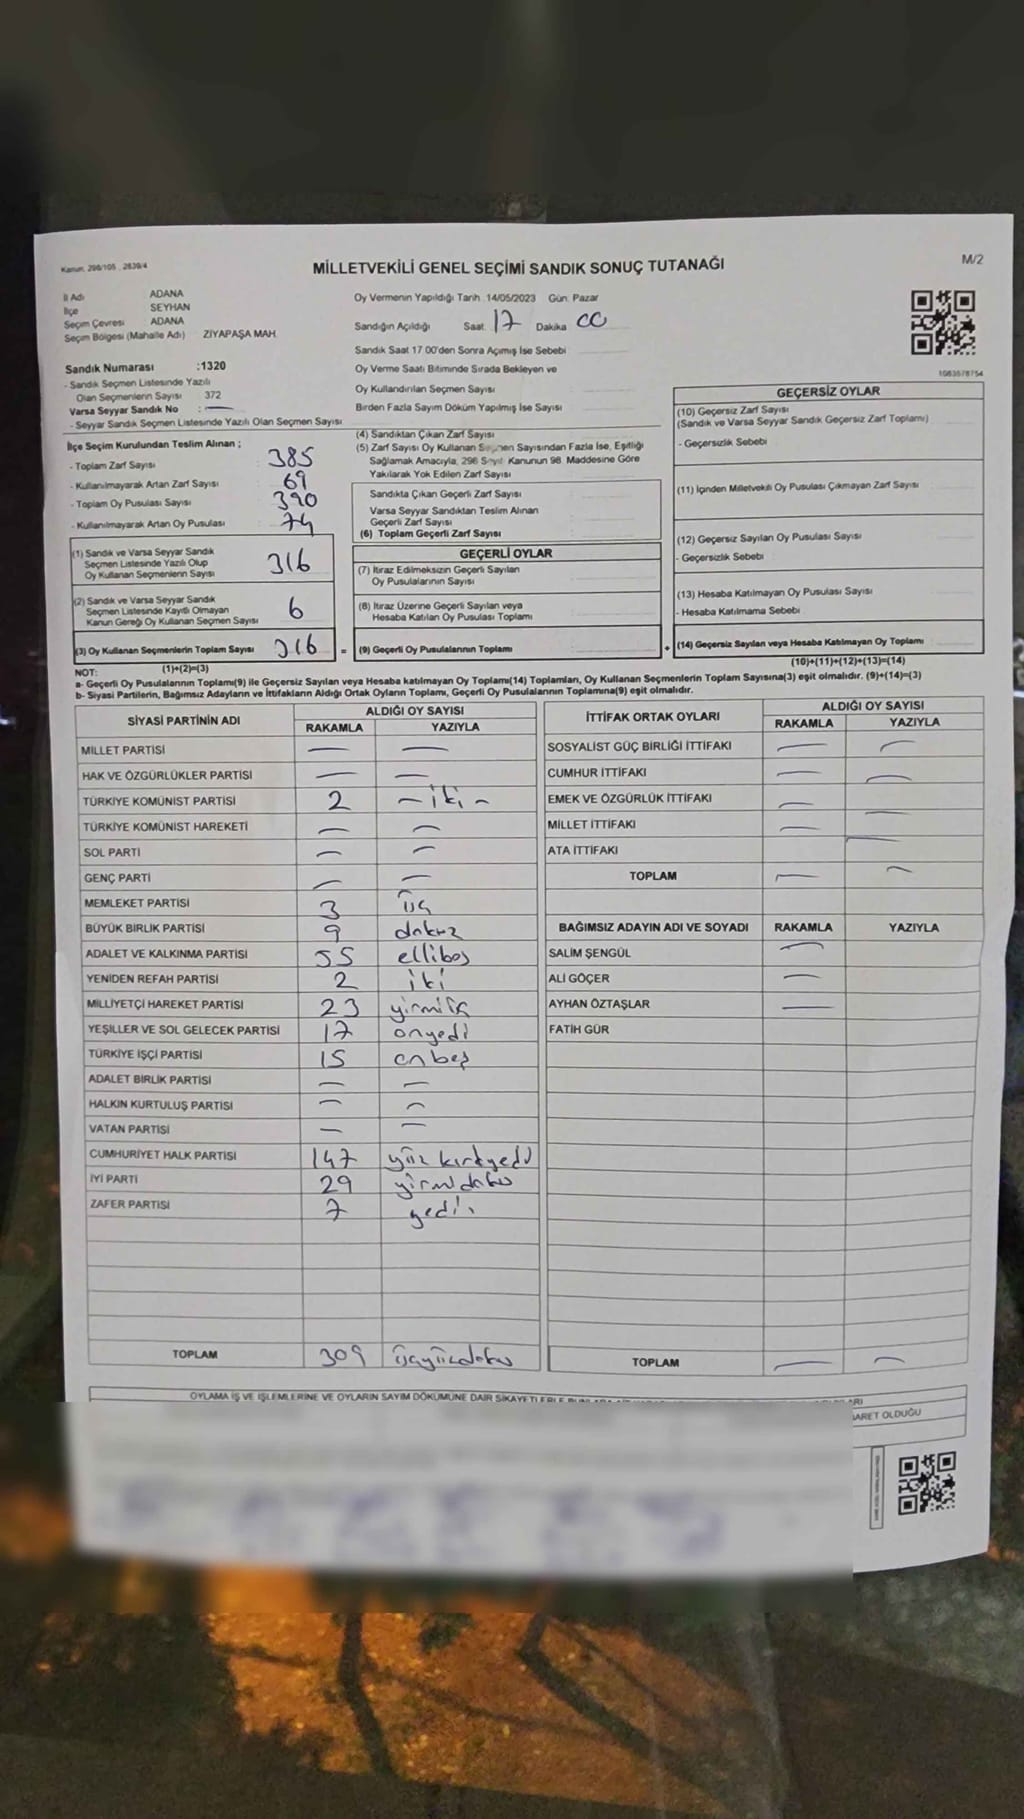 Kanun: 298/105 , 2839/4
MİLLETVEKİLİ GENEL SEÇİMİ SANDIK SONUÇ TUTANAĞI
M/2
İl Adı ADANA
İlçe SEYHAN
Seçim Çevresi ADANA
Seçim Bölgesi (Mahalle Adı) ZİYAPAŞA MAH.
Sandık Numarası :1320
- Sandık Seçmen Listesinde Yazılı
Olan Seçmenlerin Sayısı : 372
Varsa Seyyar Sandık No : —
- Seyyar Sandık Seçmen Listesinde Yazılı Olan Seçmen Sayısı
İlçe Seçim Kurulundan Teslim Alınan ;
- Toplam Zarf Sayısı : 385
- Kullanılmayarak Artan Zarf Sayısı : 69
- Toplam Oy Pusulası Sayısı : 390
- Kullanılmayarak Artan Oy Pusulası : 74
(1) Sandık ve Varsa Seyyar Sandık
Seçmen Listesinde Yazılı Olup
Oy Kullanan Seçmenlerin Sayısı 316
(2) Sandık ve Varsa Seyyar Sandık
Seçmen Listesinde Kayıtlı Olmayan
Kanun Gereği Oy Kullanan Seçmen Sayısı 6
(3) Oy Kullanan Seçmenlerin Toplam Sayısı 316 =
(1)+(2)=(3)
Oy Vermenin Yapıldığı Tarih :14/05/2023 Gün: Pazar
Sandığın Açıldığı Saat: 17 Dakika 00
Sandık Saat 17:00'den Sonra Açımış İse Sebebi
Oy Verme Saati Bitiminde Sırada Bekleyen ve
Oy Kullandırılan Seçmen Sayısı
Birden Fazla Sayım Döküm Yapılmış İse Sayısı
(4) Sandıktan Çıkan Zarf Sayısı
(5) Zarf Sayısı Oy Kullanan Seçmen Sayısından Fazla İse, Eşitliği
Sağlamak Amacıyla, 298 Sayılı Kanunun 98. Maddesine Göre
Yakılarak Yok Edilen Zarf Sayısı
Sandıkta Çıkan Geçerli Zarf Sayısı
Varsa Seyyar Sandıktan Teslim Alınan
Geçerli Zarf Sayısı
(6) Toplam Geçerli Zarf Sayısı
GEÇERLİ OYLAR
(7) İtiraz Edilmeksizin Geçerli Sayılan
Oy Pusulalarının Sayısı
(8) İtiraz Üzerine Geçerli Sayılan veya
Hesaba Katılan Oy Pusulası Toplamı
(9) Geçerli Oy Pusulalarının Toplamı +
1063578754
GEÇERSİZ OYLAR
(10) Geçersiz Zarf Sayısı
(Sandık ve Varsa Seyyar Sandık Geçersiz Zarf Toplamı)
- Geçersizlik Sebebi
(11) İçinden Milletvekili Oy Pusulası Çıkmayan Zarf Sayısı
(12) Geçersiz Sayılan Oy Pusulası Sayısı
- Geçersizlik Sebebi
(13) Hesaba Katılmayan Oy Pusulası Sayısı
- Hesaba Katılmama Sebebi
(14) Geçersiz Sayılan veya Hesaba Katılmayan Oy Toplamı
(10)+(11)+(12)+(13)=(14)
NOT:
a- Geçerli Oy Pusulalarının Toplamı(9) ile Geçersiz Sayılan veya Hesaba katılmayan Oy Toplamı(14) Toplamları, Oy Kullanan Seçmenlerin Toplam Sayısına(3) eşit olmalıdır. (9)+(14)=(3)
b- Siyasi Partilerin, Bağımsız Adayların ve İttifakların Aldığı Ortak Oyların Toplamı, Geçerli Oy Pusulalarının Toplamına(9) eşit olmalıdır.
SİYASİ PARTİNİN ADI ALDIĞI OY SAYISI
RAKAMLA YAZIYLA
MİLLET PARTİSİ — —
HAK VE ÖZGÜRLÜKLER PARTİSİ — —
TÜRKİYE KOMÜNİST PARTİSİ 2 – iki –
TÜRKİYE KOMÜNİST HAREKETİ — —
SOL PARTİ — —
GENÇ PARTİ — —
MEMLEKET PARTİSİ 3 üç
BÜYÜK BİRLİK PARTİSİ 9 dokuz
ADALET VE KALKINMA PARTİSİ 55 ellibeş
YENİDEN REFAH PARTİSİ 2 iki
MİLLİYETÇİ HAREKET PARTİSİ 23 yirmiüç
YEŞİLLER VE SOL GELECEK PARTİSİ 17 onyedi
TÜRKİYE İŞÇİ PARTİSİ 15 onbeş
ADALET BİRLİK PARTİSİ — —
HALKIN KURTULUŞ PARTİSİ — —
VATAN PARTİSİ — —
CUMHURİYET HALK PARTİSİ 147 yüz kırkyedi
İYİ PARTİ 29 yirmidokuz
ZAFER PARTİSİ 7 yedi
TOPLAM 309 üçyüzdokuz
İTTİFAK ORTAK OYLARI ALDIĞI OY SAYISI
RAKAMLA YAZIYLA
SOSYALİST GÜÇ BİRLİĞİ İTTİFAKI — —
CUMHUR İTTİFAKI — —
EMEK VE ÖZGÜRLÜK İTTİFAKI — —
MİLLET İTTİFAKI — —
ATA İTTİFAKI
TOPLAM — —
BAĞIMSIZ ADAYIN ADI VE SOYADI RAKAMLA YAZIYLA
SALİM ŞENGÜL —
ALİ GÖÇER —
AYHAN ÖZTAŞLAR —
FATİH GÜR
TOPLAM — —
OYLAMA İŞ VE İŞLEMLERİNE VE OYLARIN SAYIM DÖKÜMÜNE DAİR ŞİKAYETLERLE
OLDUĞU